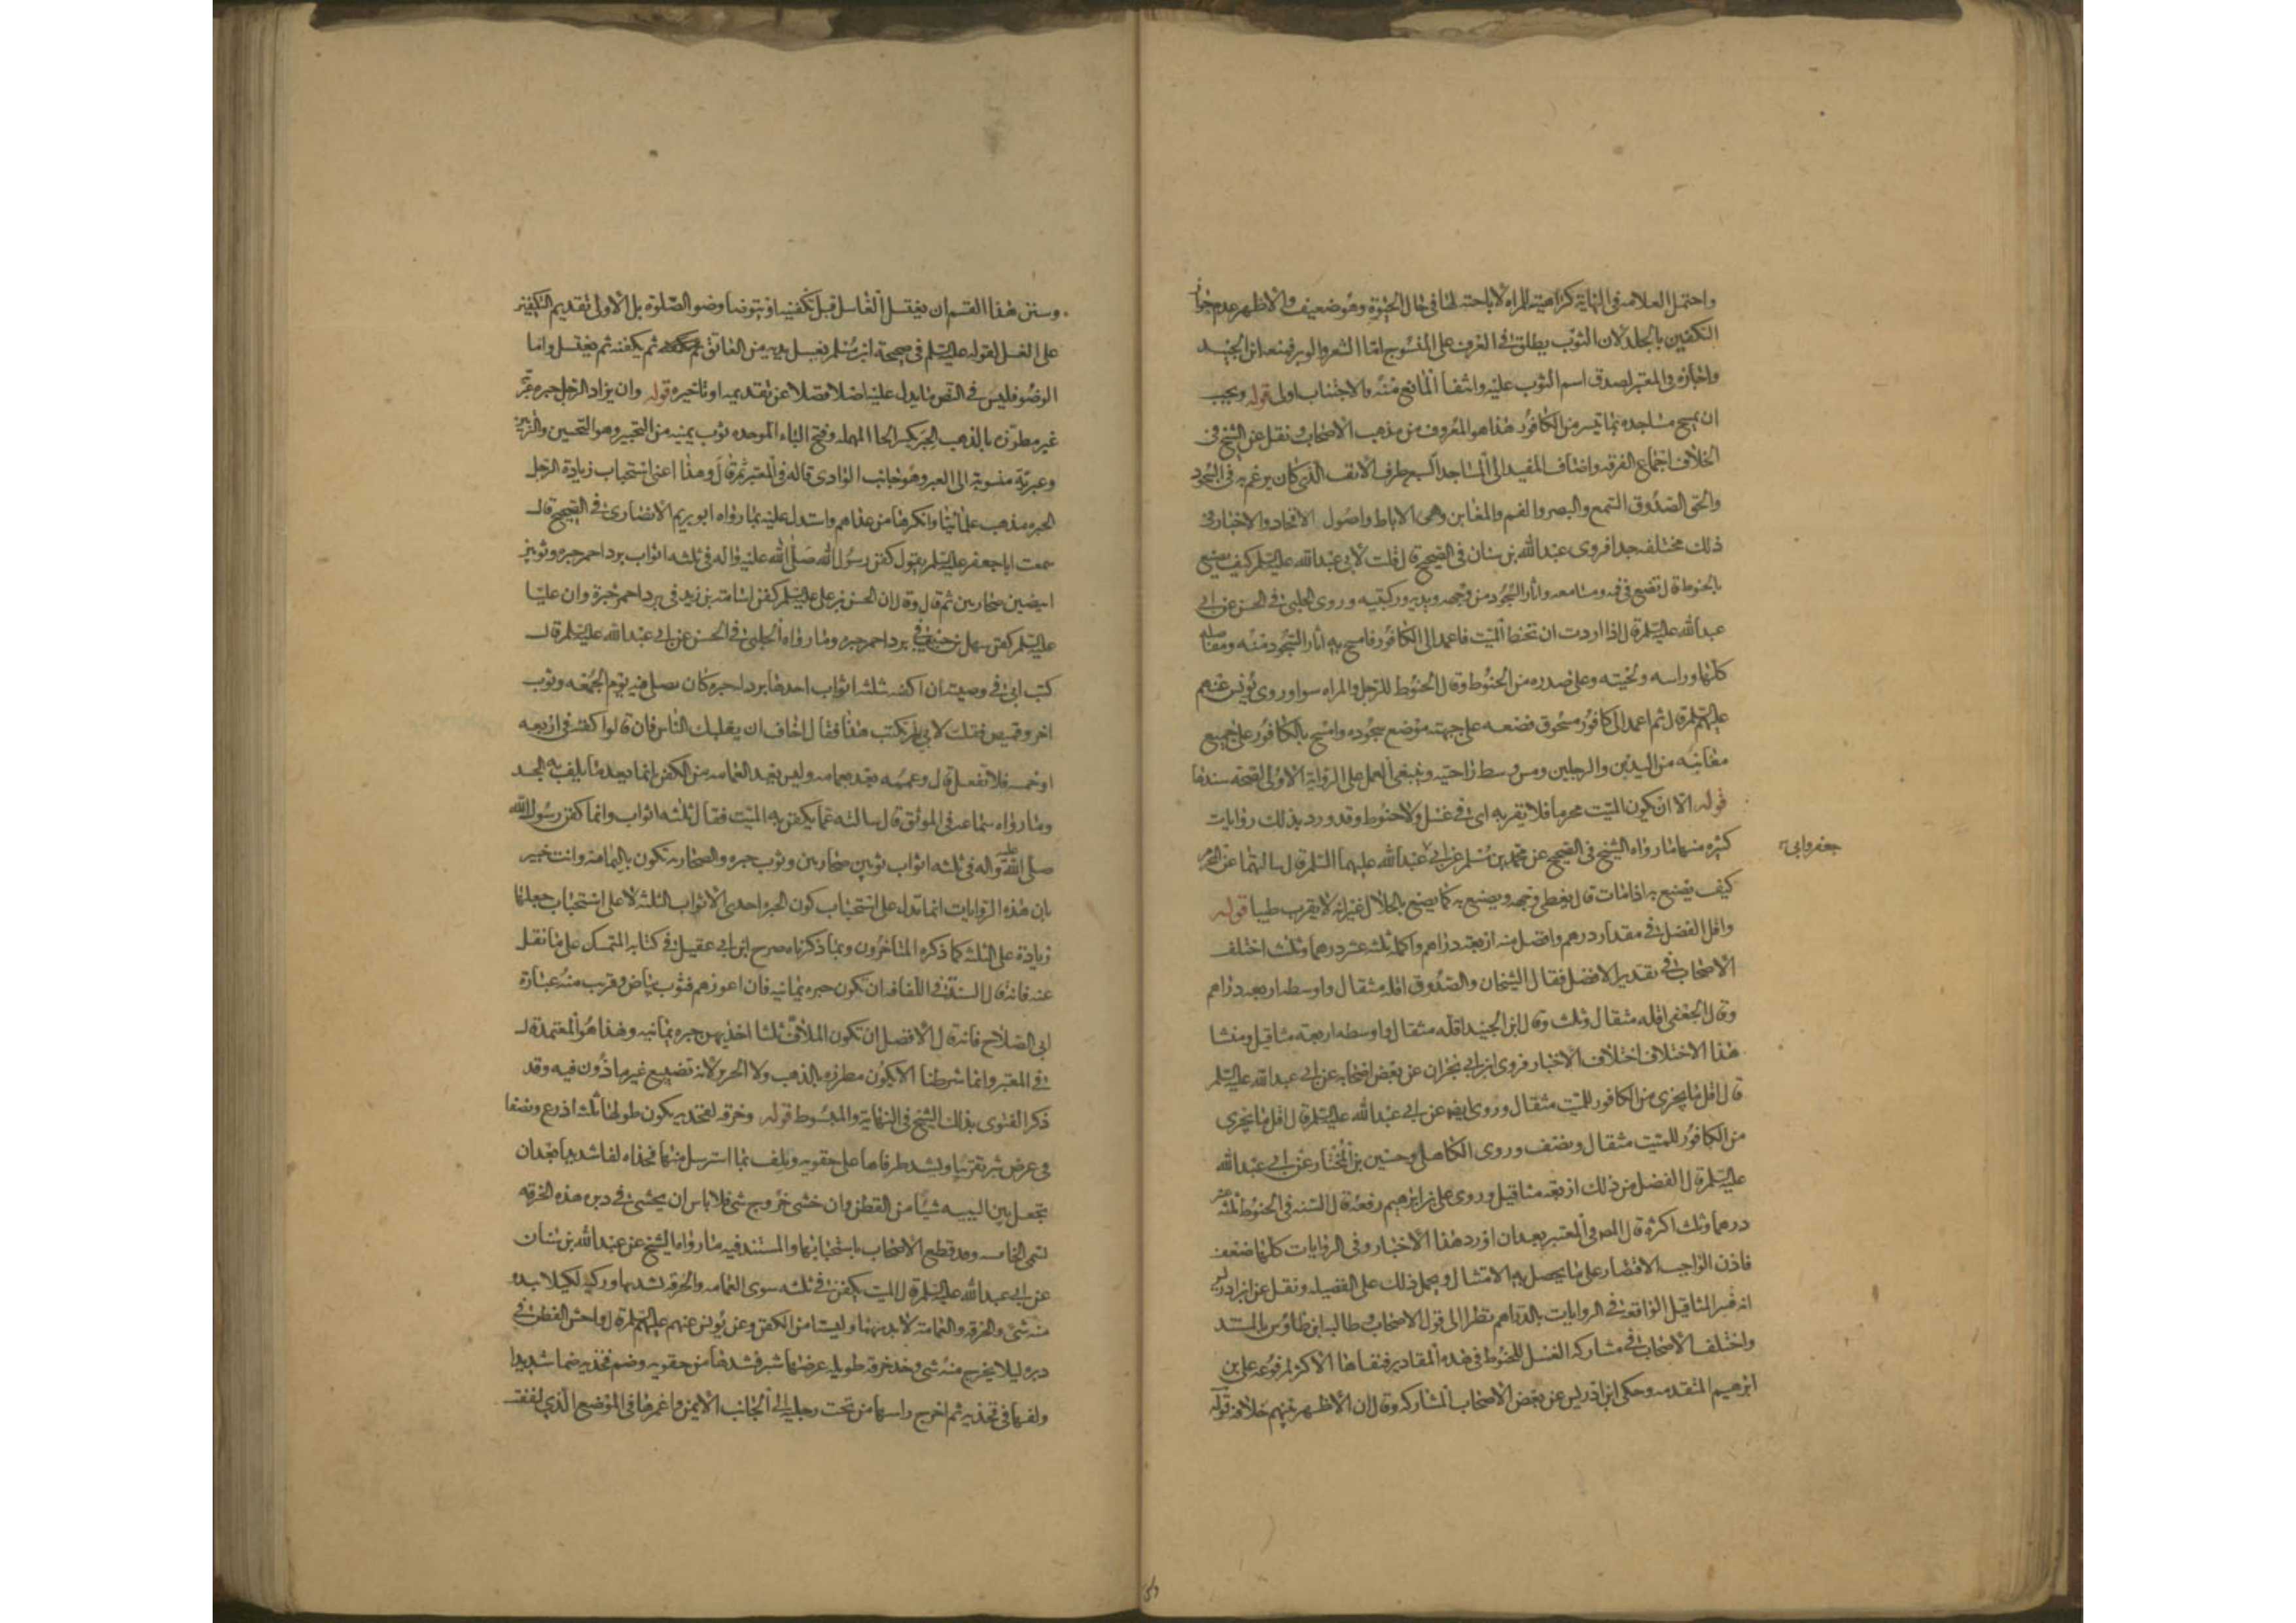 واحتمل العلامه في النهاية كراهيته للمراه لاباحته لها في حال الحيوة وهو ضعيف والاظهر عدم جواز
التكفين بالجلد لان الثوب يطلق في العرف على المنسوج اما الشعر والوبر فمنعه ابن الجنيد
واجازه في المعتبر لصدق اسم الثوب عليه وانتفا المانع منه والاجتناب اولى قوله ويجب
ان يمسح مساجده بما تيسر من الكافور هذا هو المعروف من مذهب الاصحاب ونقل عن الشيخ في
الخلاف اجماع الفرقه واضاف المفيد الى المساجد السبع طرف الانف الذي كان يرغم به في السجود
والحق الصدوق السمع والبصر والفم والمغابن وهي الاباط واصول الافخاد والاخبار في
ذلك مختلفه جدا فروى عبدالله بن سنان في الصحيح قال قلت لابي عبدالله عليه السلم كيف يصنع
بالحنوط قال تضع في فمه ومسامعه واثار السجود من وجهه ويديه وركبتيه وروى الحلبي في الحسن عن ابي
عبدالله عليه السلم قال اذا اردت ان تحنط الميت فاعمد الى الكافور فامسح به اثار السجود منه ومفاصله
كلها وراسه ولحيته وعلى صدره من الحنوط وقال الحنوط للرجل والمراه سوا وروى يونس عنهم
عليهم السلم قال ثم اعمد الى كافور مسحوق فضعه على جبهته موضع سجوده وامسح بالكافور على جميع
مغابنه من اليدين والرجلين ومن وسط راحتيه وينبغي العمل على الرواية الاولى لصحة سندها
قوله الا ان يكون الميت محرما فلا يقربه اى في غسل ولا حنوط وقد ورد بذلك روايات
كثيره منها ما رواه الشيخ في الصحيح عن محمد بن مسلم عن ابي عبدالله عليهما السلم قال سالتهما عن المحرم
جعفر وابي
كيف يصنع به اذا مات قال يغطى وجهه ويصنع به كما يصنع بالحلال غير انه لا يقرب طيبا قوله
واقل الفضل في مقدار درهم وافضل منه اربعه دراهم واكمله ثلثه عشر درهما وثلث اختلف
الاصحاب في تقدير الافضل فقال الشيخان والصدوق اقله مثقال واوسطه اربعه دراهم
وقال الجعفي اقله مثقال وثلث وقال ابن الجنيد اقله مثقال واوسطه اربعة مثاقيل ومنشا
هذا الاختلاف اختلاف الاخبار فروى ابن ابي نجران عن بعض اصحابه عن ابي عبدالله عليه السلم
قال اقل ما يجزى من الكافور للميت مثقال وروى ايضه عن ابي عبدالله عليه السلم قال اقل ما يجزى
من الكافور للميت مثقال ونصف وروى الكاهلي وحسين بن المختار عن ابي عبدالله
عليه السلم قال الفضل من ذلك اربعه مثاقيل وروى علي بن ابرهيم رفعه قال السنه في الحنوط ثلثه عشر
درهما وثلث اكثره قال المصر في المعتبر بعد ان اورد هذا الاخبار وفي الروايات كلها ضعف
فاذن الواجب الاقتصار على ما يحصل به الامتثال ويحمل ذلك على الفضيله ونقل عن ابن ادريس
انه فسر المثاقيل الواقعة في الروايات بالدراهم نظرا الى قول الاصحاب وطالبه ابن طاوس بالمستند
واختلف الاصحاب في مشاركه الغسل للحنوط في هذه المقادير فنفاها الاكثر لمرفوعه علي بن
ابرهيم المتقدمه وحكى ابن ادريس عن بعض الاصحاب المشاركه وقال ان الاظهر بينهم خلافه قوله
وسنن هذا القسم ان يغتسل الغاسل قبل تكفينه او يتوضا وضو الصلوة بل الاولى تقديم التكفين
على الغسل لقوله عليه السلم في صحيحة ابن مسلم يغسل يديه من العاتق ثم يكفنه ثم يغتسل واما
الوضو فليس في النص ما يدل عليه اصلا فضلا عن تقديمه او تاخيره قوله وان يزاد الرجل حبره عبريه
غير مطرزه بالذهب الحبر بكسر الحا المهمله وفتح الباء الموحده ثوب يمنيه من التحبير وهو التحسين والتزيين
وعبريّه منسوبة الى العبر وهو جانب الوادى قاله في المعتبر ثم قال وهذا اعنى استحباب زيادة الرجل
الحبره مذهب علمائنا وانكرها من عداهم واستدل عليه بما رواه ابو مريم الانصارى في الصحيح قال
سمعت ابا جعفر عليه السلم يقول كفن رسول الله صلى الله عليه واله في ثلثه اثواب برد احمر حبره وثوبين
ابيضين صحاريين ثم قال وقال ان الحسن بن علي عليه السلم كفن اسامة بن زيد في برد احمر حبرة وان عليا
عليه السلم كفن سهل بن حنيف في برد احمر حبره وما رواه الحلبي في الحسن عن ابي عبدالله عليه السلم قال
كتب ابي في وصيته ان اكفنه بثلثه اثواب احدها برد له حبره كان يصلي فيه يوم الجمعه وثوب
اخر وقميص فقلت لابي لم تكتب هذا فقال اخاف ان يغلبك الناس فان قالوا كفنه في اربعه
او خمسه فلا تفعل قال وعممه بعد بعمامه وليس تعد العمامه من الكفن انما يعد ما يلف به الجسد
وما رواه سماعه في الموثق قال سالته عما يكفن به الميت فقال ثلثه اثواب وانما كفن رسول الله
صلى الله عليه واله في ثلثه اثواب ثوبين صحاريين وثوب حبره والصحاريه تكون باليمامة وانت خبير
بان هذه الروايات انما تدل على استحباب كون الحبره احدى الاثواب الثلثه لا على استحباب جعلها
زيادة على الثلثه كما ذكره المتاخرون وبما ذكرناه صرح ابن ابي عقيل في كتابه المتمسك على ما نقل
عنه فانه قال السنة في اللفافه ان تكون حبره يمانيه فان اعوزهم فثوب بياض وقريب منه عبارة
ابي الصلاح فانه قال الافضل ان تكون الملاف ثلثا احديهن حبره يمانيه وهذا هو المعتمد قال
في المعتبر وانما شرطنا الا يكون مطرزه بالذهب ولا الحرير لانه تضييع غير ماذون فيه وقد
ذكر الفتوى بذلك الشيخ في النهاية والمبسوط قوله وخرقه لفخذيه يكون طولها ثلثه اذرع ونصفا
في عرض شبر تقريبا ويشد طرفاها على حقويه ويلف بما استرسل منها فخذاه لفا شديدا بعد ان
تجعل بين الييه شيئا من القطن وان خشي خروج شي فلا باس ان يحشى في دبره هذه الخرقه
تسمى الخامسه وقد قطع الاصحاب باستحبابها والمستند فيه ما رواه الشيخ عن عبدالله بن سنان
عن ابي عبدالله عليه السلم قال الميت يكفن في ثلثه سوى العمامه والخرقه تشد بها وركيه لكيلا يبدو
منه شي والخرقه والعمامة لا بد منها وليستا من الكفن وعن يونس عنهم عليهم السلم قال واحش القطن في
دبره ليلا يخرج منه شي وخذ خرقه طويله عرضها شبر فشدها من حقويه وضم فخذيه ضما شديدا
ولفها في فخذيه ثم اخرج راسها من تحت رجليه الى الجانب الايمن واغمزها في الموضع الذي لففت